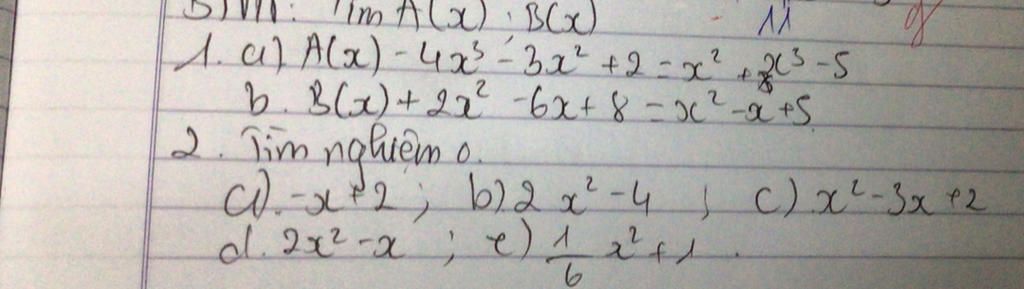 Tìm A(x); B(x)
1. a) A(x) - 4x³ - 3x² + 2 = x² + x³ - 5
b. B(x) + 2x² - 6x + 8 = x² - x + 5.
2. Tìm nghiệm o.
a). -x + 2 ; b) 2x² - 4 ; c) x² - 3x + 2
d. 2x² - x ; e) 1/6 x² + 1.